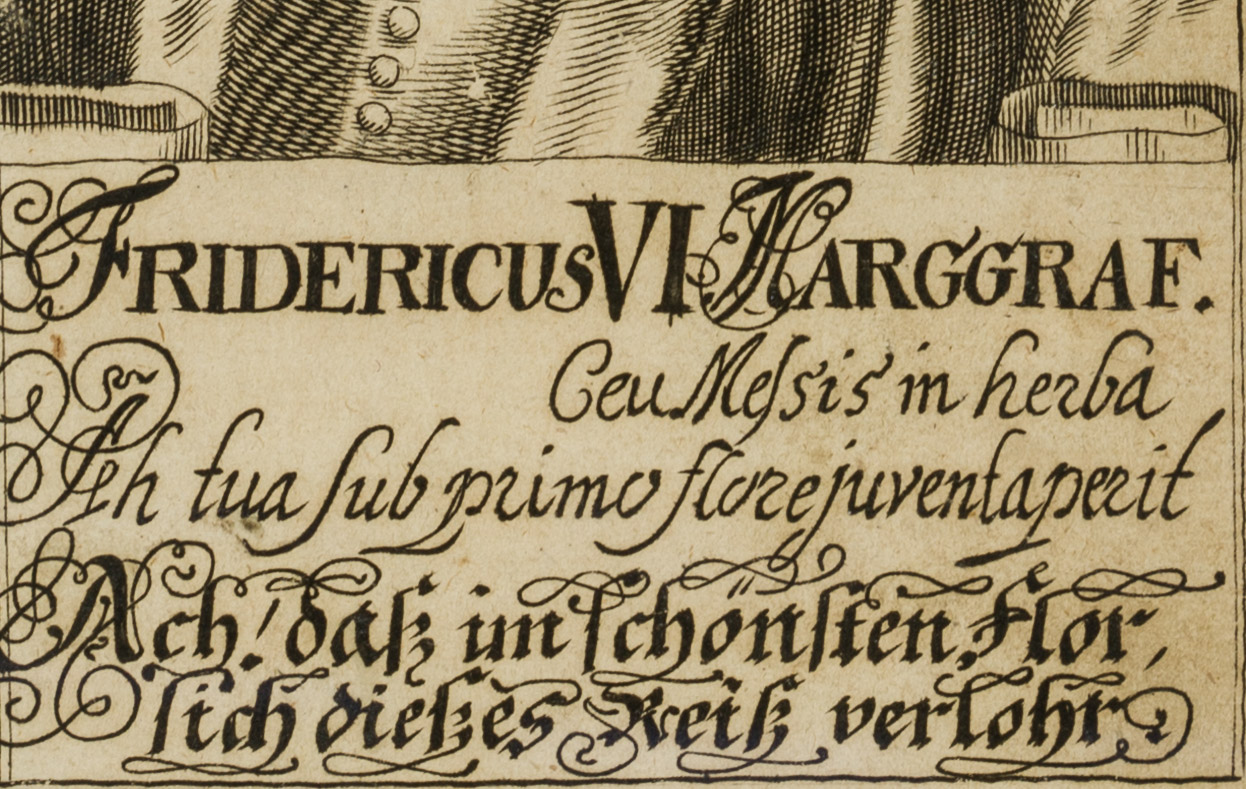 FRIDERICUS VI MARGGRAF.
Ceu Meſsis in herba
Ah tua ſub primo flore juventa perit
Ach! daſz im ſchönſten Flor,
ſich dieſzes Reiſz verlohr